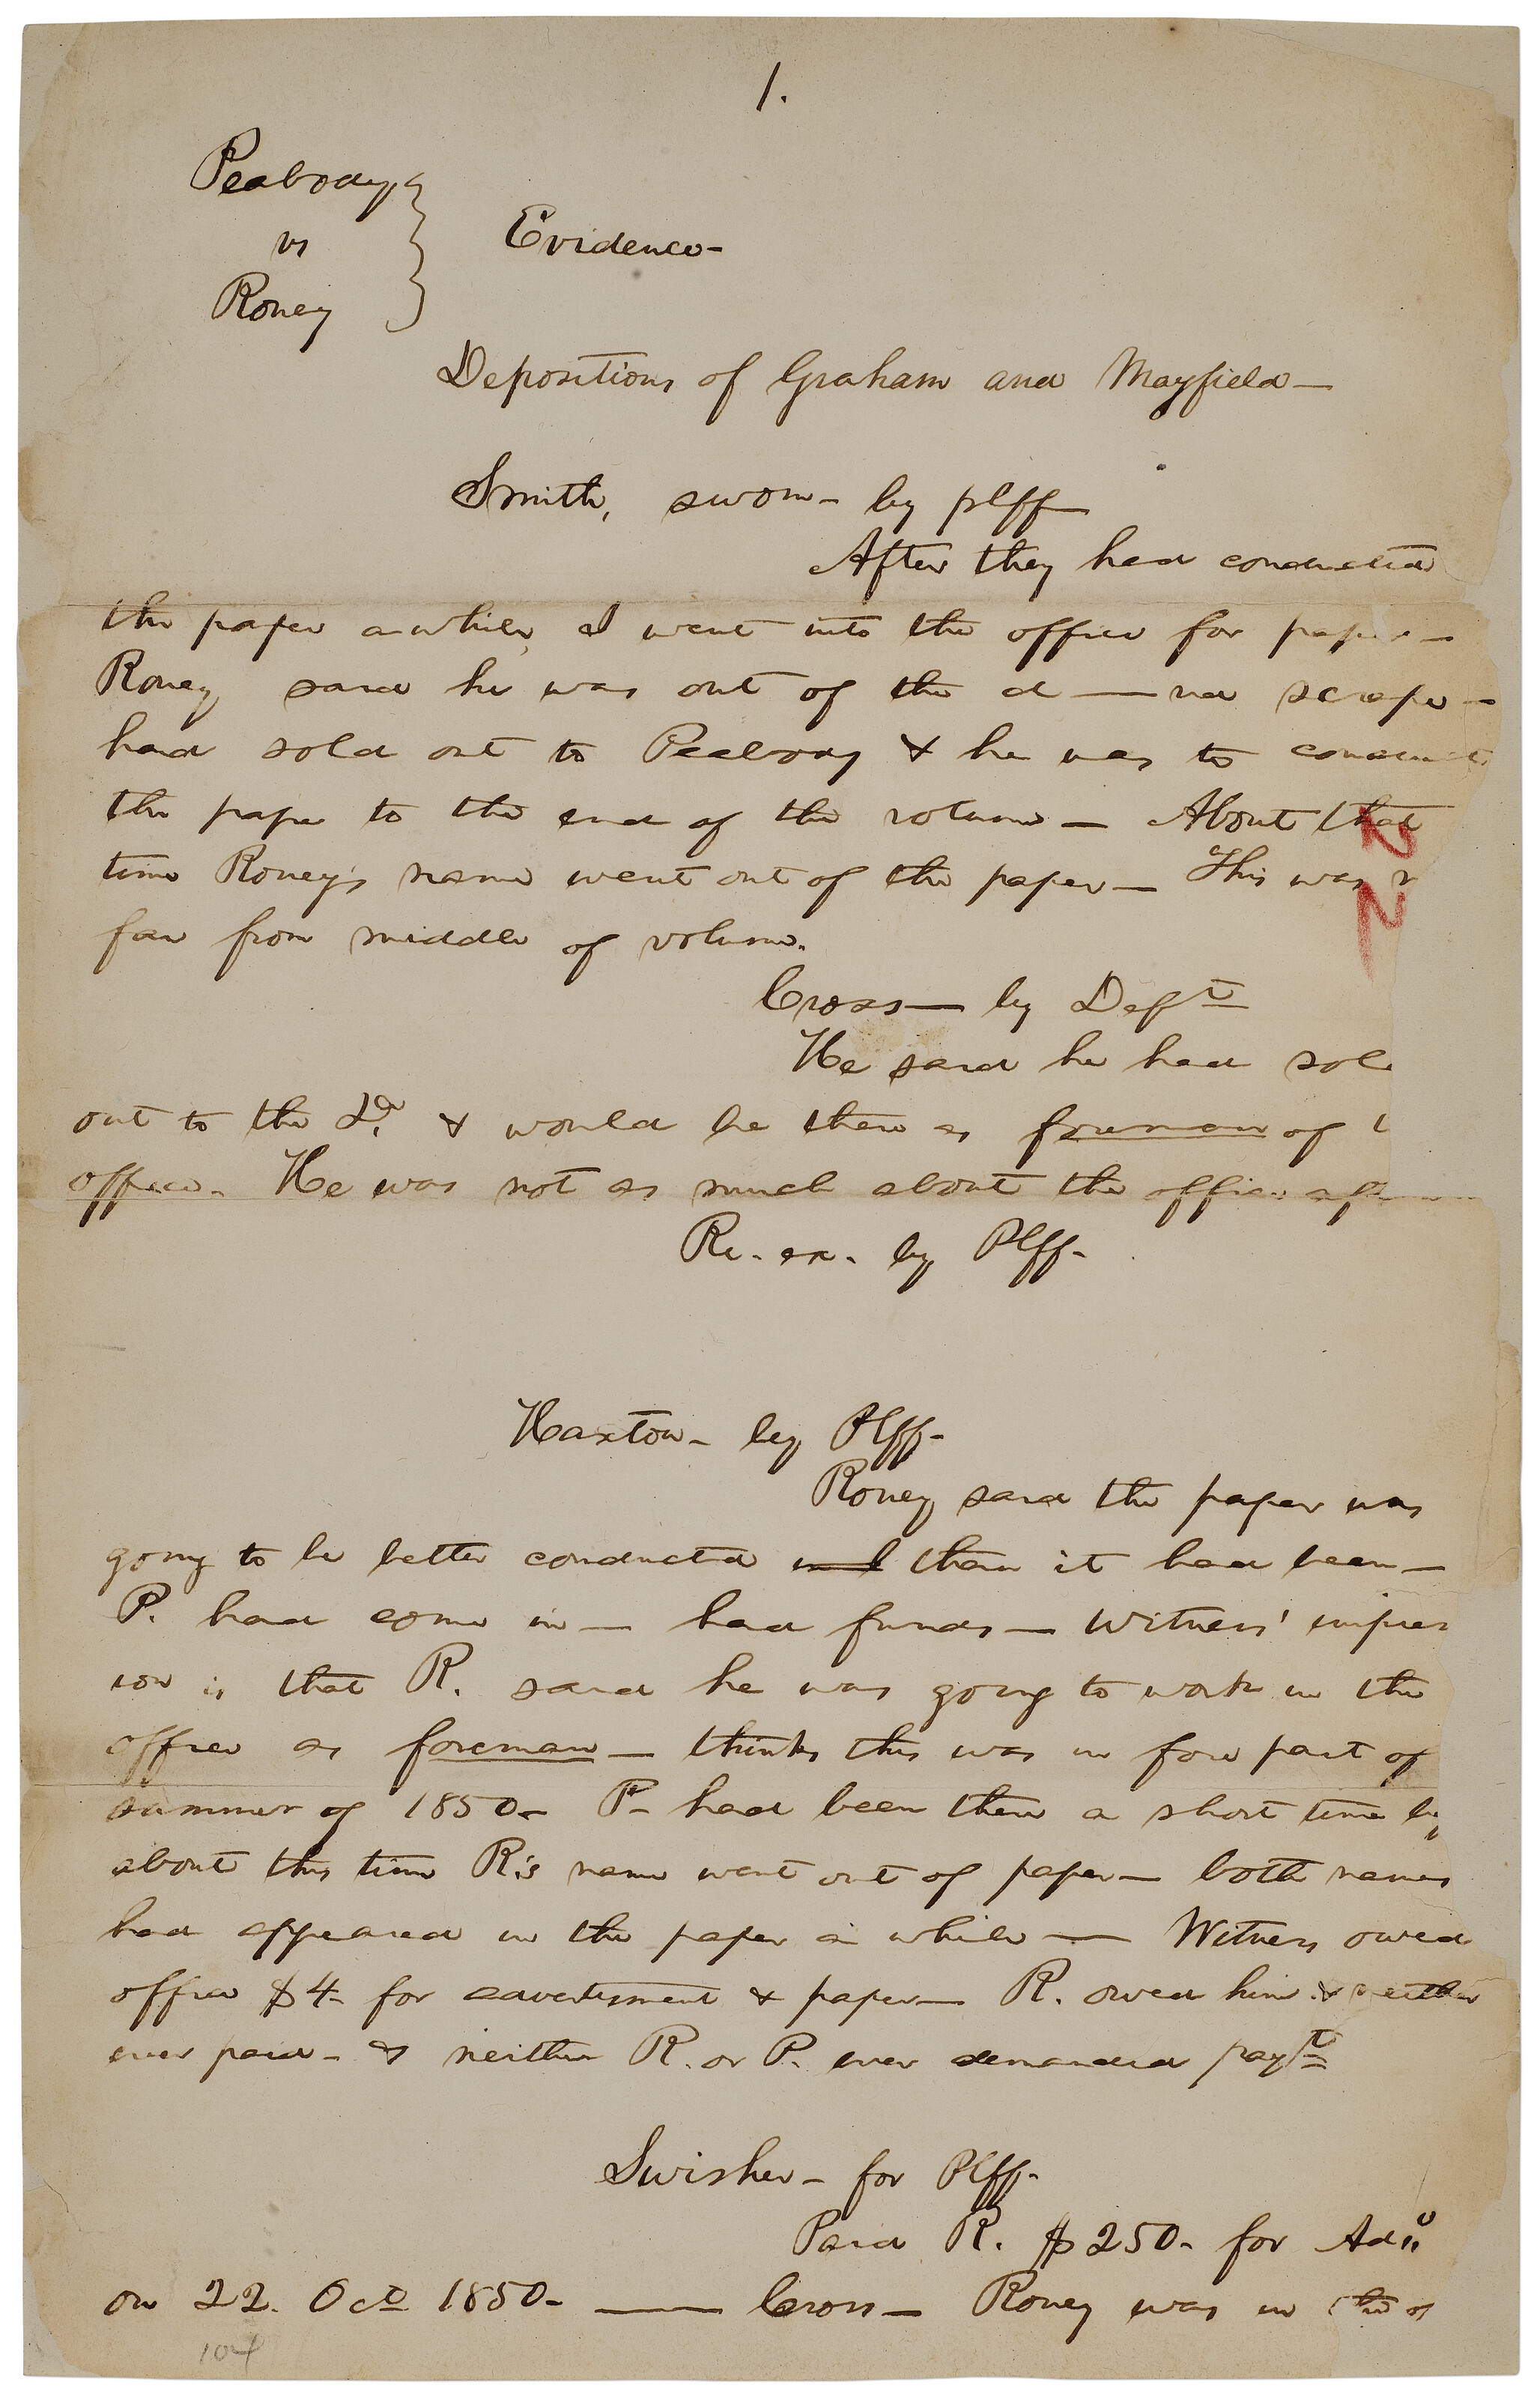 1.
Peabody
vs
Roney
Evidence-
Depositions of Graham and Mayfield—
Smith, sworn- by plff—
After they had conducted
the paper awhile, I went into the office for paper—
Roney said he was out of the d—nd scrape—
had sold out to Peabody & he was to conduct
the paper to the end of the volume— About that
time Roney's name went out of the paper— This was
far from middle of volume.
Cross— by Deft
He said he had sol
out to the & would be there as foreman of
office. He was not as much about the office
Re. ex. by Plff-
Haxton- by Plff-
Roney said the paper was
going to be better conducted than it had been—
P. had come in— had funds— Witness' impres
ion is that R. said he was going to work in the
office as foreman— thinks this was in fore part of
summer of 1850- P- had been there a short time
about this time R's name went out of paper— both names
had appeared in the paper a while— Witness owed
office $4- for advertisment & paper— R. owed him & neither
ever paid- & neither R. or P. ever demanded payt
Swisher- for Plff-
Paid R. $250- for
on 22. Oct 1850- —— Cross— Roney was in the of
104
22